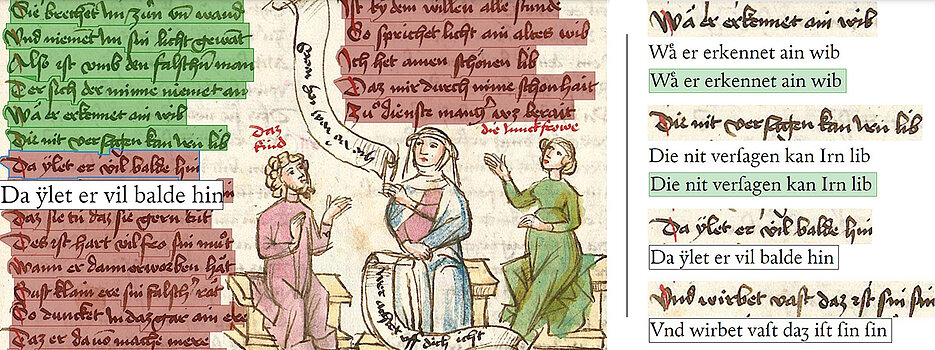 Sie brechent Im zûn vñ wand
Vnd niemet Im sin licht gewāt
Also ist vmb den falschñ man
Der sich der minne niemet an
Wå er erkennet ain wib
Die nit versagen kan Irn lib
Da ÿlet er vil balde hin
Da ÿlet er vil balde hin
Daz sie tů daz sie gern tůt
Des ist hart vil fro sin můt
Wann er dann erworben hāt
Sust klain ere sin falsch rāt
So duncket In daz gar am ere
Daz er dauō mache mere
Ist by dem willen alle stunde
So sprichet licht ain altes wib
Ich het ainen schönen lib
Daz mir durch mine schonhait
Zů dienste wāz berait
daz kind
die Junckfrowe
dich icht
Wå er erkennet ain wib
Wå er erkennet ain wib
Wå er erkennet ain wib
Die nit versagen kan Irn lib
Die nit verſagen kan Irn lib
Die nit verſagen kan Irn lib
Da ÿlet er vil balde hin
Da ÿlet er vil balde hin
Vnd wirbet vast daz ist sin sin
Vnd wirbet vaſt daʒ iſt ſin ſin